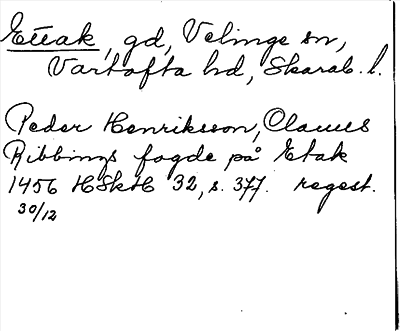 Ettak, gd, Velinge sn,
Vartofta hd, Skarab. l.
Peder Henriksson, Claues
Ribbings fogde på Etak
1456 HSkH 32, s. 377. regest.
30/12